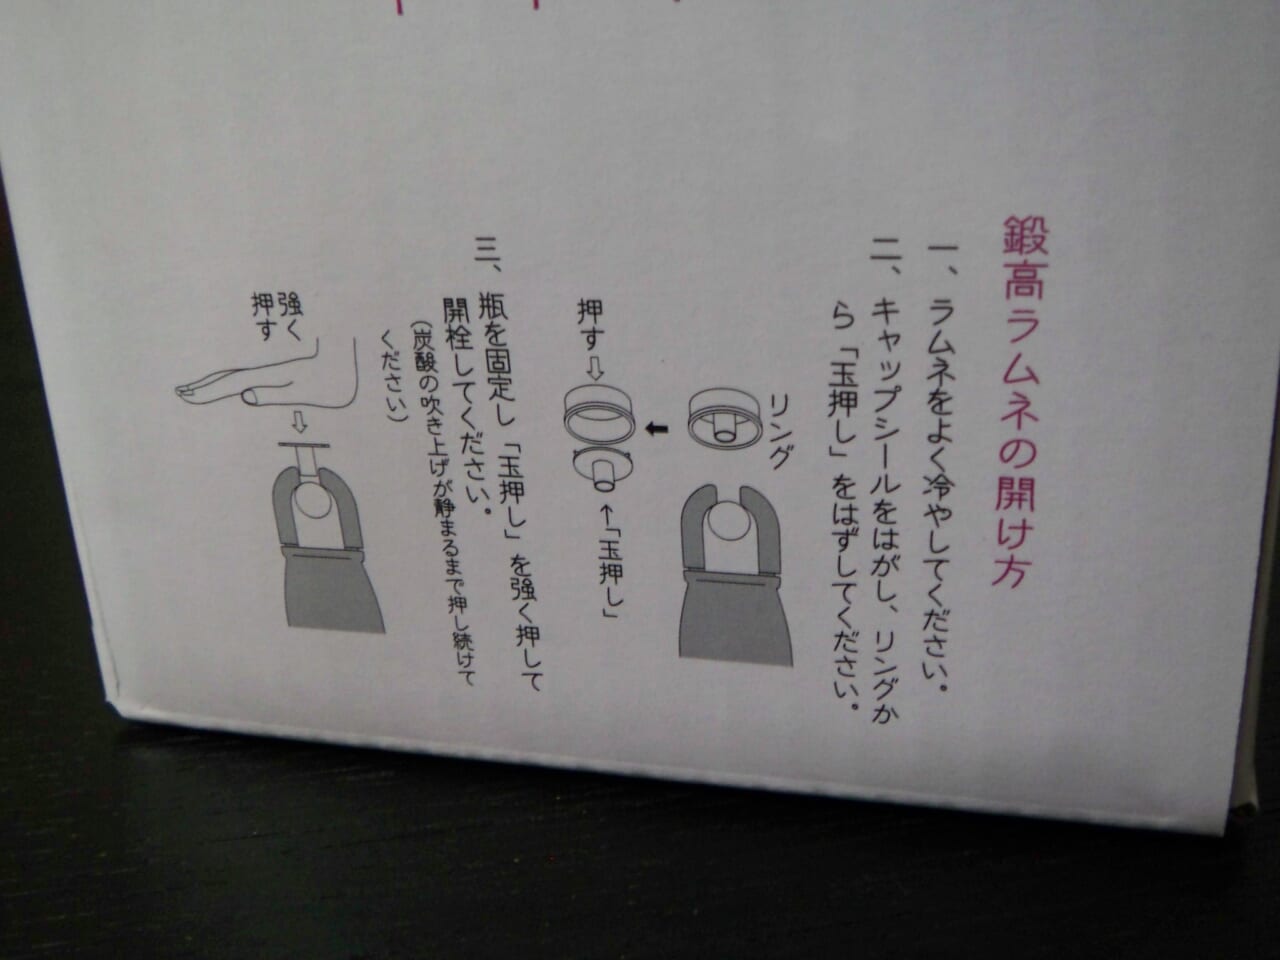 鍛高ラムネの開け方
一、ラムネをよく冷やしてください。
二、キャップシールをはがし、リングか
ら「玉押し」をはずしてください。
リング
押す
↑「玉押し」
三、瓶を固定し「玉押し」を強く押して
開栓してください。
(炭酸の吹き上げが静まるまで押し続けて
ください)
強く
押す